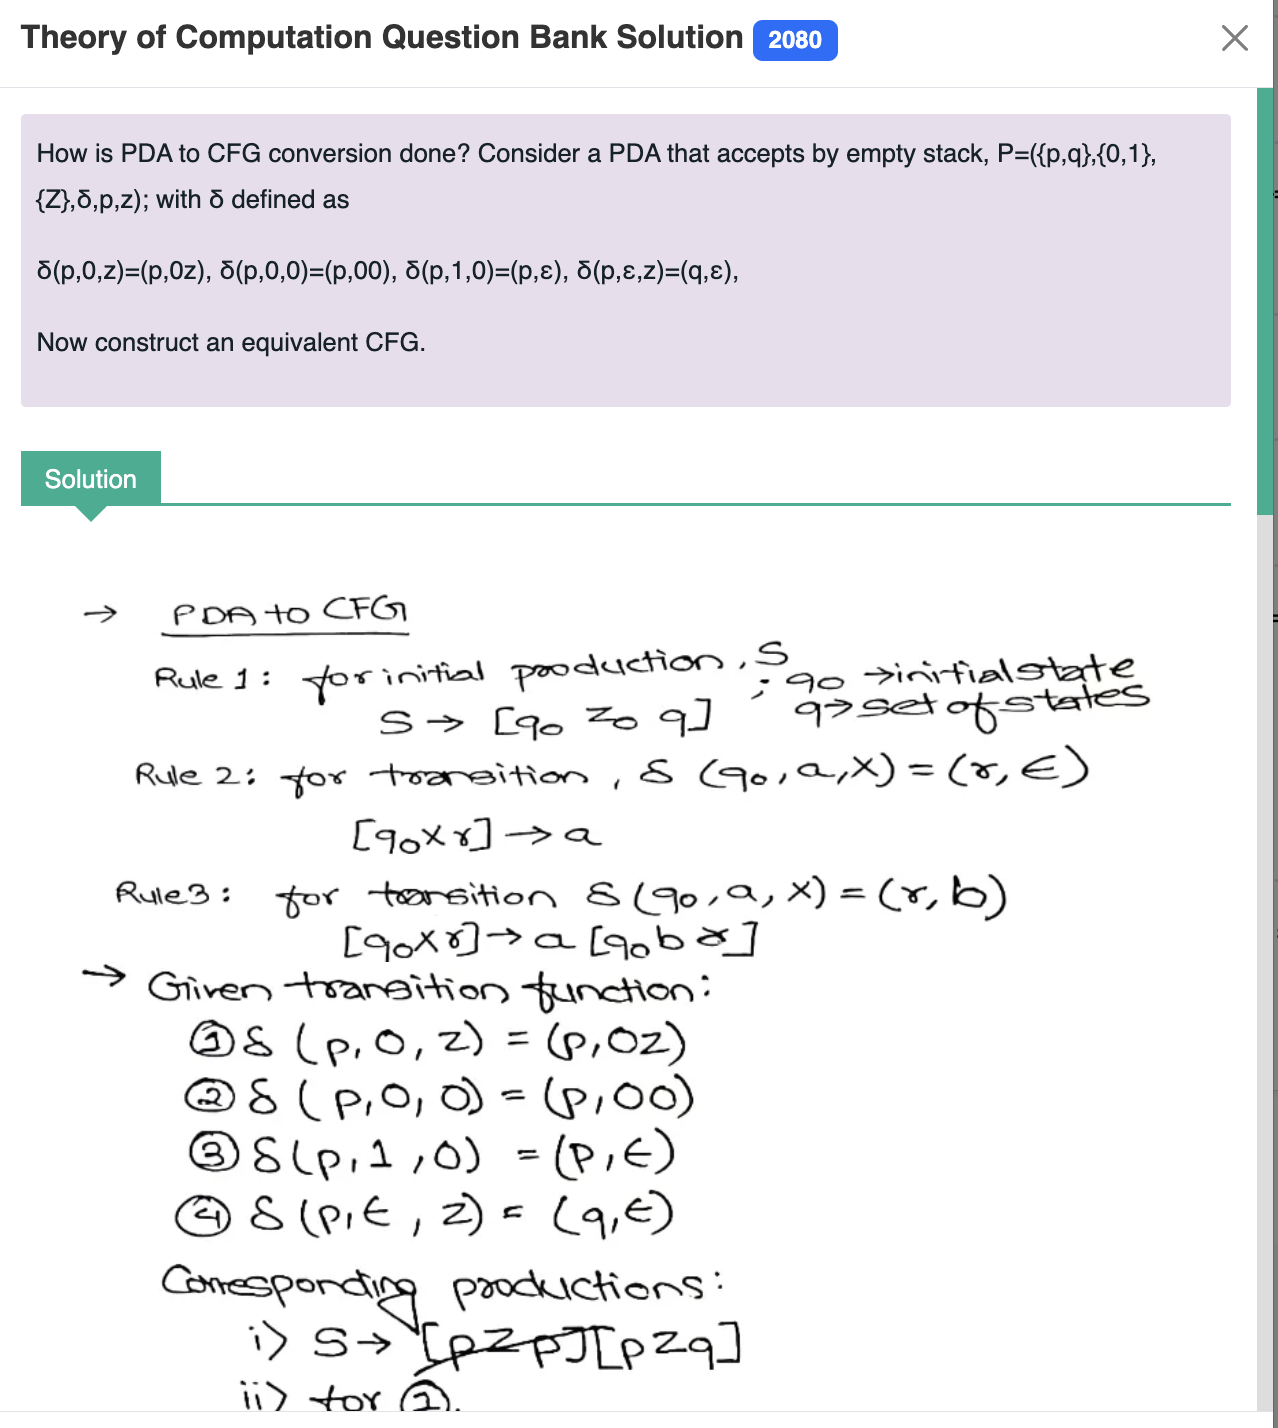 Theory of Computation Question Bank Solution 2080
How is PDA to CFG conversion done? Consider a PDA that accepts by empty stack, P=({p,q},{0,1},
{Z},δ,p,z); with δ defined as
δ(p,0,z)=(p,0z), δ(p,0,0)=(p,00), δ(p,1,0)=(p,ε), δ(p,ε,z)=(q,ε),
Now construct an equivalent CFG.
Solution
→ PDA to CFG
Rule 1: for initial production, S
S → [q0 z0 q] ; q0 → initial state
q → set of states
Rule 2: for transition, δ (q0, a, X) = (r, ∈)
[q0 X r] → a
Rule3: for transition δ (q0, a, X) = (r, b)
[q0 X r] → a [q0 b r]
→ Given transition function:
① δ (p, 0, z) = (p, 0z)
② δ (p, 0, 0) = (p, 00)
③ δ (p, 1, 0) = (p, ∈)
④ δ (p, ∈, z) = (q, ∈)
Corresponding productions:
i) S → [pzp][pzq]
ii) for ①.